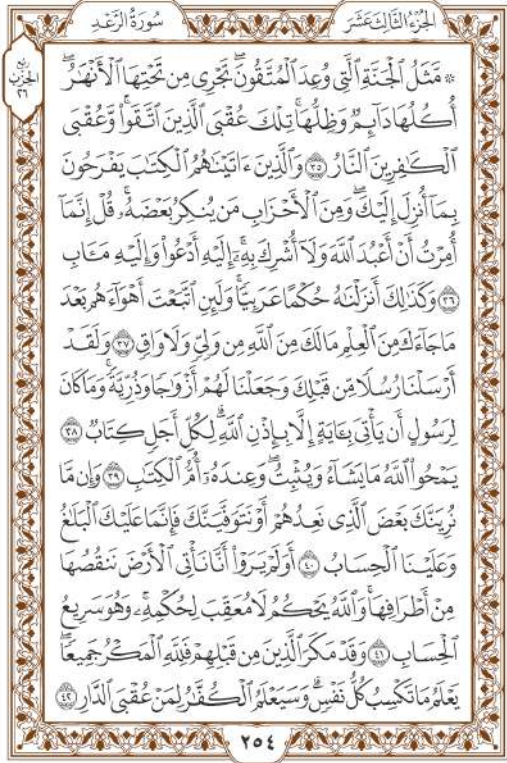 الجُزْءُ الثَّالِثَ عَشَرَ
سُورَةُ الرَّعْدِ
ربع
الحزب
٢٦
۞ مَّثَلُ ٱلْجَنَّةِ ٱلَّتِى وُعِدَ ٱلْمُتَّقُونَۖ تَجْرِى مِن تَحْتِهَا ٱلْأَنْهَٰرُۖ
أُكُلُهَا دَآئِمٌ وَظِلُّهَاۚ تِلْكَ عُقْبَى ٱلَّذِينَ ٱتَّقَوا۟ۖ وَّعُقْبَى
ٱلْكَٰفِرِينَ ٱلنَّارُ ٣٥ وَٱلَّذِينَ ءَاتَيْنَٰهُمُ ٱلْكِتَٰبَ يَفْرَحُونَ
بِمَآ أُنزِلَ إِلَيْكَۖ وَمِنَ ٱلْأَحْزَابِ مَن يُنكِرُ بَعْضَهُۥۚ قُلْ إِنَّمَآ
أُمِرْتُ أَنْ أَعْبُدَ ٱللَّهَ وَلَآ أُشْرِكَ بِهِۦٓۚ إِلَيْهِ أَدْعُوا۟ وَإِلَيْهِ مَـَٔابِ
٣٦ وَكَذَٰلِكَ أَنزَلْنَٰهُ حُكْمًا عَرَبِيًّاۚ وَلَئِنِ ٱتَّبَعْتَ أَهْوَآءَهُم بَعْدَ
مَا جَآءَكَ مِنَ ٱلْعِلْمِ مَا لَكَ مِنَ ٱللَّهِ مِن وَلِىٍّ وَلَا وَاقٍ ٣٧ وَلَقَدْ
أَرْسَلْنَا رُسُلًا مِّن قَبْلِكَ وَجَعَلْنَا لَهُمْ أَزْوَٰجًا وَذُرِّيَّةًۚ وَمَا كَانَ
لِرَسُولٍ أَن يَأْتِىَ بِـَٔايَةٍ إِلَّا بِإِذْنِ ٱللَّهِۗ لِكُلِّ أَجَلٍ كِتَابٌ ٣٨
يَمْحُوا۟ ٱللَّهُ مَا يَشَآءُ وَيُثْبِتُۖ وَعِندَهُۥٓ أُمُّ ٱلْكِتَٰبِ ٣٩ وَإِن مَّا
نُرِيَنَّكَ بَعْضَ ٱلَّذِى نَعِدُهُمْ أَوْ نَتَوَفَّيَنَّكَ فَإِنَّمَا عَلَيْكَ ٱلْبَلَٰغُ
وَعَلَيْنَا ٱلْحِسَابُ ٤٠ أَوَلَمْ يَرَوْا۟ أَنَّا نَأْتِى ٱلْأَرْضَ نَنقُصُهَا
مِنْ أَطْرَافِهَاۚ وَٱللَّهُ يَحْكُمُ لَا مُعَقِّبَ لِحُكْمِهِۦۚ وَهُوَ سَرِيعُ
ٱلْحِسَابِ ٤١ وَقَدْ مَكَرَ ٱلَّذِينَ مِن قَبْلِهِمْ فَلِلَّهِ ٱلْمَكْرُ جَمِيعًاۖ
يَعْلَمُ مَا تَكْسِبُ كُلُّ نَفْسٍۗ وَسَيَعْلَمُ ٱلْكُفَّٰرُ لِمَنْ عُقْبَى ٱلدَّارِ ٤٢
٢٥٤